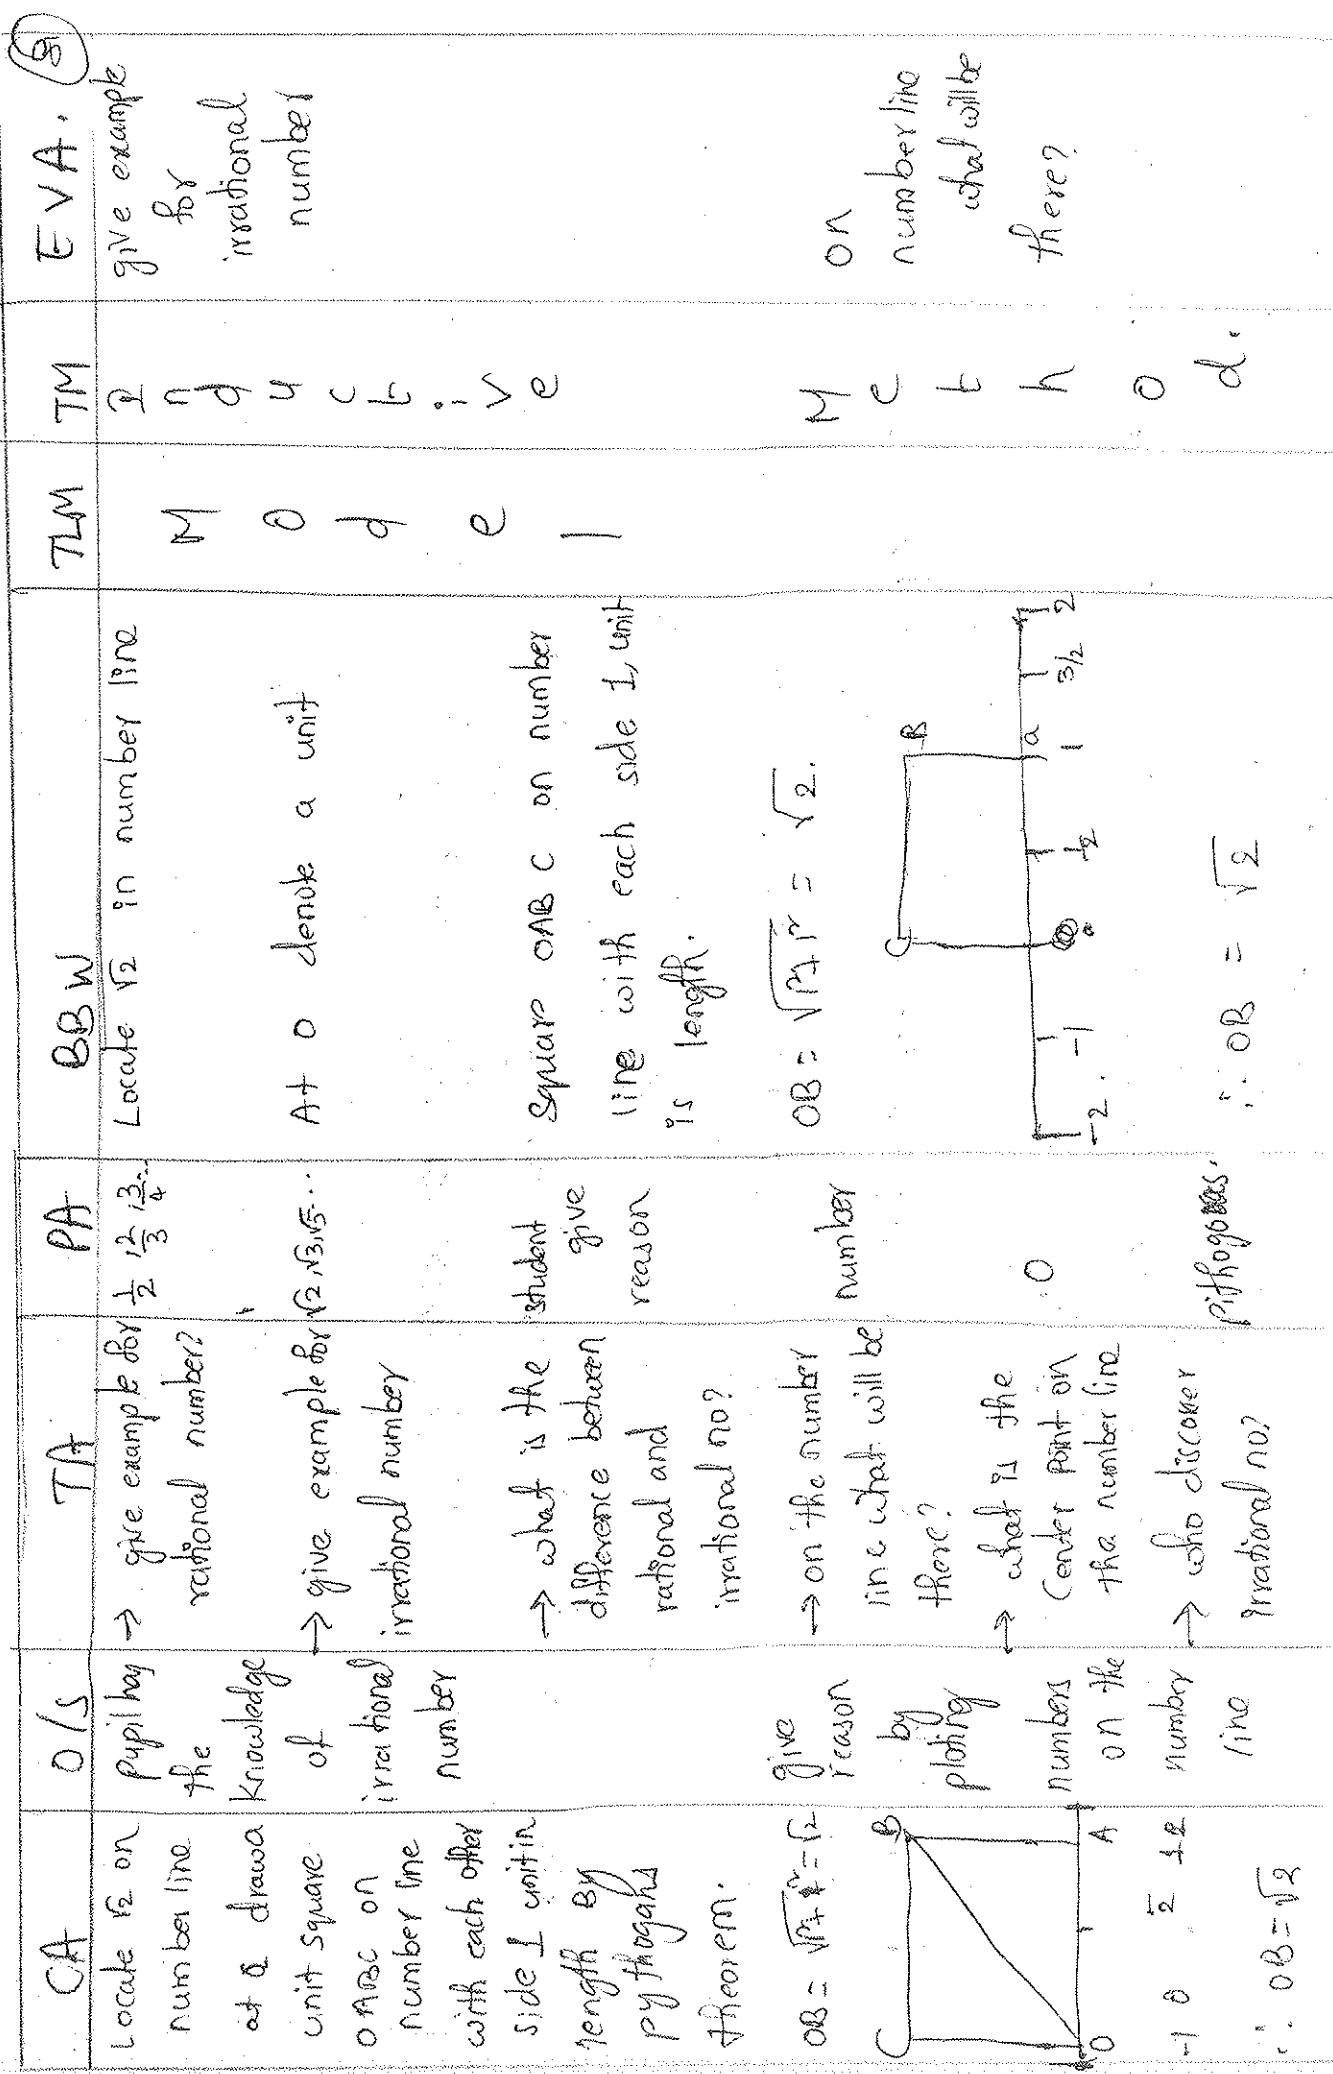 CA
Locate √2 on
number line
at O drawa
unit square
OABC on
number line
with each other
side 1 unit in
length By
pythogahs
theorem.
OB = √1²+1² = √2
C B
O A
-1 0 1/2 1 2
∴ OB = √2
O/S
Pupil hay
the
knowledge
of
irrational
number
give
reason
by
ploting
numbers
on the
number
line
TA
→ give example for
rational number?
→ give example for
irrational number
→ what is the
difference between
rational and
irrational no?
→ on the number
line what will be
there?
→ what is the
Center point on
the number line
→ who discover
irrational no?
PA
1/2, 2/3, 3/4..
√2, √3, √5...
student
give
reason
number
0
BBW
Locate √2 in number line
At O denote a unit
Squar OABC on number
line with each side 1, unit
is length.
OB = √1²+1² = √2.
C B
a
-2. -1 1/2 1 3/2 2
∴ OB = √2
TLM
Model
TM
Inductive
Method.
EVA.
give example
for
irrational
number
on
number line
what will be
there?